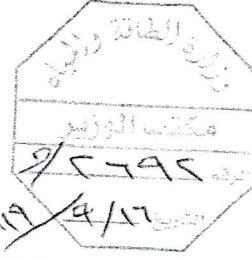 وزارة الطاقة والمياه
مكتب الوزير
الرقم ٢٦٩٢/و
التاريخ ١٦/٤/١٩